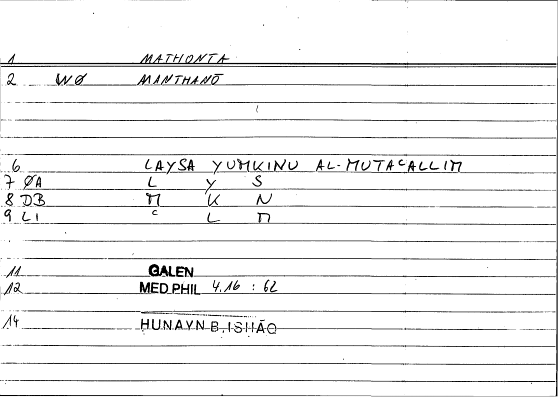 1 MATHONTA
2 WØ MANTHANŌ
6 LAYSA YUMKINU AL-MUTAᶜALLIM
7 ØA L Y S
8 DB M K N
9 LI ᶜ L M
11 GALEN
12 MED PHIL 4.16 : 62
14 HUNAYN B. ISHĀQ